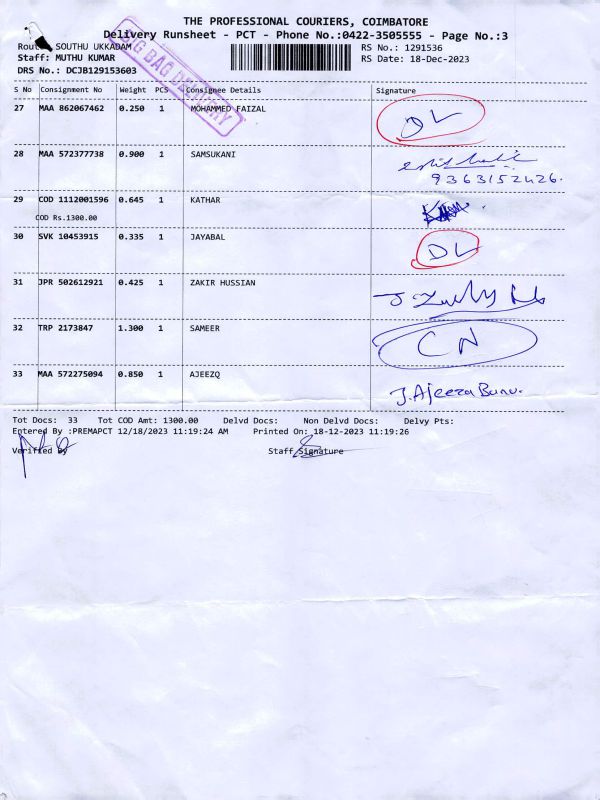 THE PROFESSIONAL COURIERS, COIMBATORE
Delivery Runsheet - PCT - Phone No.:0422-3505555 - Page No.:3
Route: SOUTHU UKKADAM RS No.: 1291536
Staff: MUTHU KUMAR RS Date: 18-Dec-2023
DRS No.: DCJB129153603
BIG BAG DELIVERY
S No Consignment No Weight PCS Consignee Details Signature
27 MAA 862067462 0.250 1 MOHAMMED FAIZAL DL
28 MAA 572377738 0.900 1 SAMSUKANI
9363152426.
29 COD 1112001596 0.645 1 KATHAR
COD Rs.1300.00
30 SVK 10453915 0.335 1 JAYABAL DL
31 JPR 502612921 0.425 1 ZAKIR HUSSIAN
32 TRP 2173847 1.300 1 SAMEER CN
33 MAA 572275094 0.850 1 AJEEZQ J.Ajeeza Banu.
Tot Docs: 33 Tot COD Amt: 1300.00 Delvd Docs: Non Delvd Docs: Delvy Pts:
Entered By :PREMAPCT 12/18/2023 11:19:24 AM Printed On: 18-12-2023 11:19:26
Verified By Staff Signature